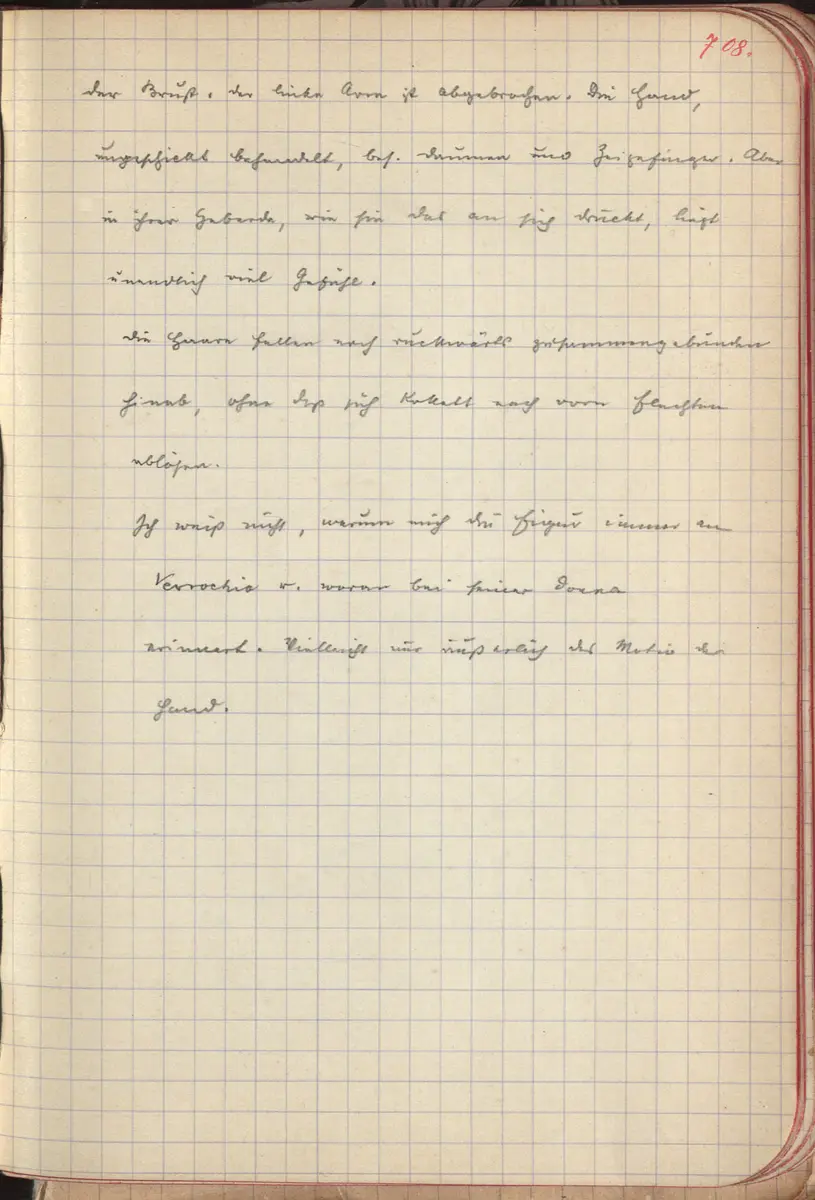 708.
der Brust. der linke Arm ist abgebrochen. Die Hand,
ungeschickt behandelt, bes. Daumen und Zeigefinger. Aber
in ihrer Geberde, wie sie das an sich drückt, liegt
unendlich viel Gefühl.
Die Haare fallen nach rückwärts zusammengebunden
hinab, ohne daß sich kokett nach vorn Flechten
ablösen.
Ich weiß nicht, warum mich die Figur immer an
Verrochio u. woran bei seiner Donna
erinnert. Vielleicht nur äußerlich das Motiv der
Hand.